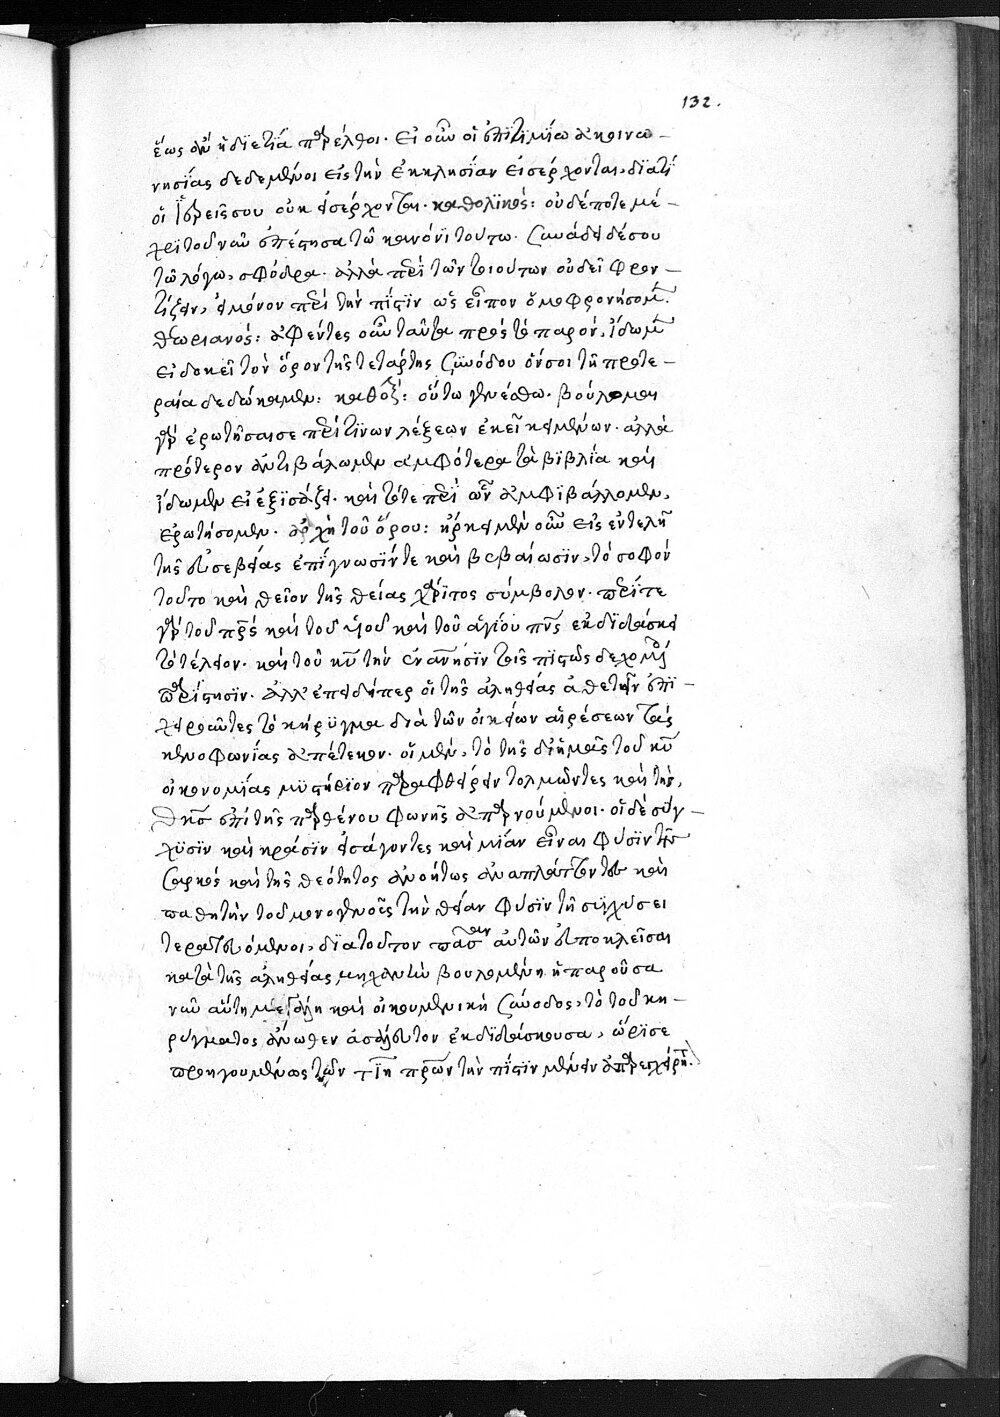 132.
ἕως ἂν ἡ διετία παρέλθοι. Εἰ οὖν οἱ ἐπιτιμίῳ ἀκοινω-
νησίας δεδεμένοι εἰς τὴν ἐκκλησίαν εἰσέρχονται, διατί
οἱ ἱερεῖς σου οὐκ εἰσέρχονται. καθολικός: οὐδέποτε μέ-
χρι τοῦ νῦν ἐπέστησα τῷ κανόνι τούτῳ. συνάδει δέ σου
τῷ λόγῳ, σφόδρα. ἀλλὰ περὶ τῶν τοιούτων οὐ δεῖ φρον-
τίζειν, εἰ μόνον περὶ τὴν πίστιν ὡς εἶπον ὁμοφρονήσομεν.
θεωριανός: ἀφέντες οὖν ταῦτα πρὸς τὸ παρόν, ἴδωμεν
εἰ δοκεῖ τὸν ὅρον τῆς τετάρτης συνόδου ὅν σοι τῇ προτε-
ραία δεδώκαμεν: καθολικός: οὕτω γενέσθω. βούλομαι
γὰρ ἐρωτῆσαι σε περί τινων λέξεων ἐκεῖ κειμένων. ἀλλὰ
πρότερον ἀντιβάλωμεν ἀμφότερα τὰ βιβλία καὶ
ἴδωμεν εἰ ἐξισάζει. καὶ τότε περὶ ὧν ἀμφιβάλλομεν,
ἐρωτήσομεν. ἀρχὴ τοῦ ὅρου: ἤρκει μὲν οὖν εἰς ἐντελῆ
τῆς εὐσεβείας ἐπίγνωσίν τε καὶ βεβαίωσιν, τὸ σοφὸν
τοῦτο καὶ θεῖον τῆς θείας χάριτος σύμβολον. περί τε
γὰρ τοῦ πρς καὶ τοῦ υἱοῦ καὶ τοῦ ἁγίου πνς ἐκδιδάσκει
τὸ τέλειον. καὶ τοῦ κυ τὴν ἐνανησιν τοῖς πιστῶς δεχομένοις
παρίστησιν. ἀλλ' ἐπειδήπερ οἱ τῆς ἀληθείας ἀθετεῖν ἐπι-
χειροῦντες τὸ κήρυγμα διὰ τῶν οἰκείων αἱρέσεων τὰς
κενοφωνίας ἀπέτεκον. οἱ μὲν, τὸ τῆς δι' ἡμᾶς τοῦ κυ
οἰκονομίας μυστήριον παραφθείρειν τολμῶντες καὶ τὴν,
θκος ἐπὶ τῆς παρθένου φωνῆς ἀπαρνούμενοι. οἱ δὲ σύγ-
χυσιν καὶ κράσιν εἰσάγοντες καὶ μίαν εἶναι φύσιν τῆς
σαρκὸς καὶ τῆς θεότητος ἀνοήτως ἀναπλάττοντες καὶ
παθητὴν τοῦ μονογενοῦς τὴν θείαν φύσιν τῇ συγχύσει
τερατευόμενοι, διὰ τοῦτο πᾶσαν αὐτῶν ἀποκλεῖσαι
κατὰ τῆς ἀληθείας μηχανὴν βουλομένη ἡ παροῦσα
νῦν αὕτη μεγάλη καὶ οἰκουμενικὴ σύνοδος, τὸ τοῦ κη-
ρύγματος ἄνωθεν ἀσάλευτον ἐκδιδάσκουσα, ὥρισε
προηγουμένως τῶν τιη πρων τὴν πίστιν μένειν ἀπαρεγχείρητον.